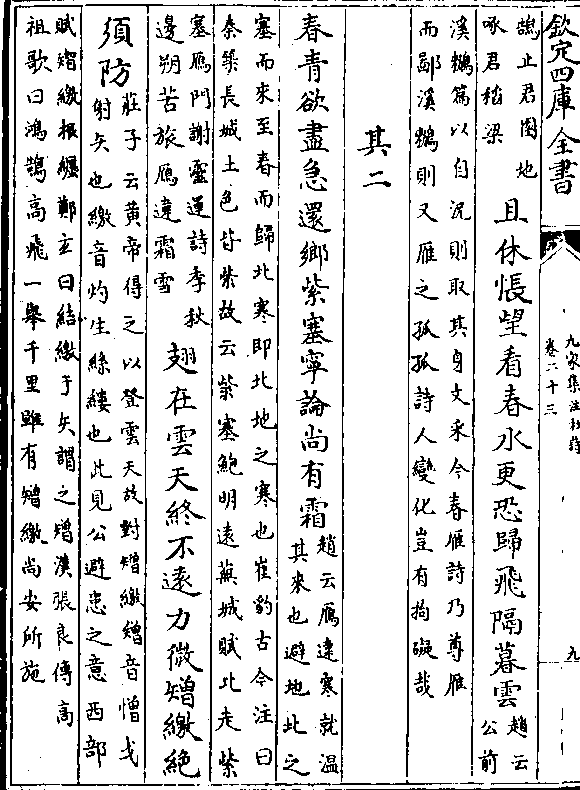 欽定四庫全書
九家集注杜詩
卷二十三
九
鵠止君園地
啄君稻粱
且休悵望看春水更恐歸飛隔暮雲
趙云
公前
溪鶒篇以自況則取其身文采今春雁詩乃尊雁
而鄙溪鶒則又雁之孤孤詩人變化豈有拘礙哉
其二
春青欲盡急還鄉紫塞寧論尚有霜
趙云雁違寒就温
其來也避地北之
塞而來至春而歸北寒即北地之寒也崔豹古今注曰
秦築長城土色皆紫故云紫塞鮑明遠蕪城賦北走紫
塞雁門謝靈運詩季秋
邊朔苦旅雁違霜雪
翅在雲天終不遠力微矰繳絶
須防
莊子云黄帝得之以登雲天故對矰繳矰音憎弋
射矢也繳音灼生絲縷也此見公避患之意西部
賦矰繳相纒鄭玄曰結繳于矢謂之矰漢張良傳高
祖歌曰鴻鵠高飛一舉千里雖有矰繳尚安所施